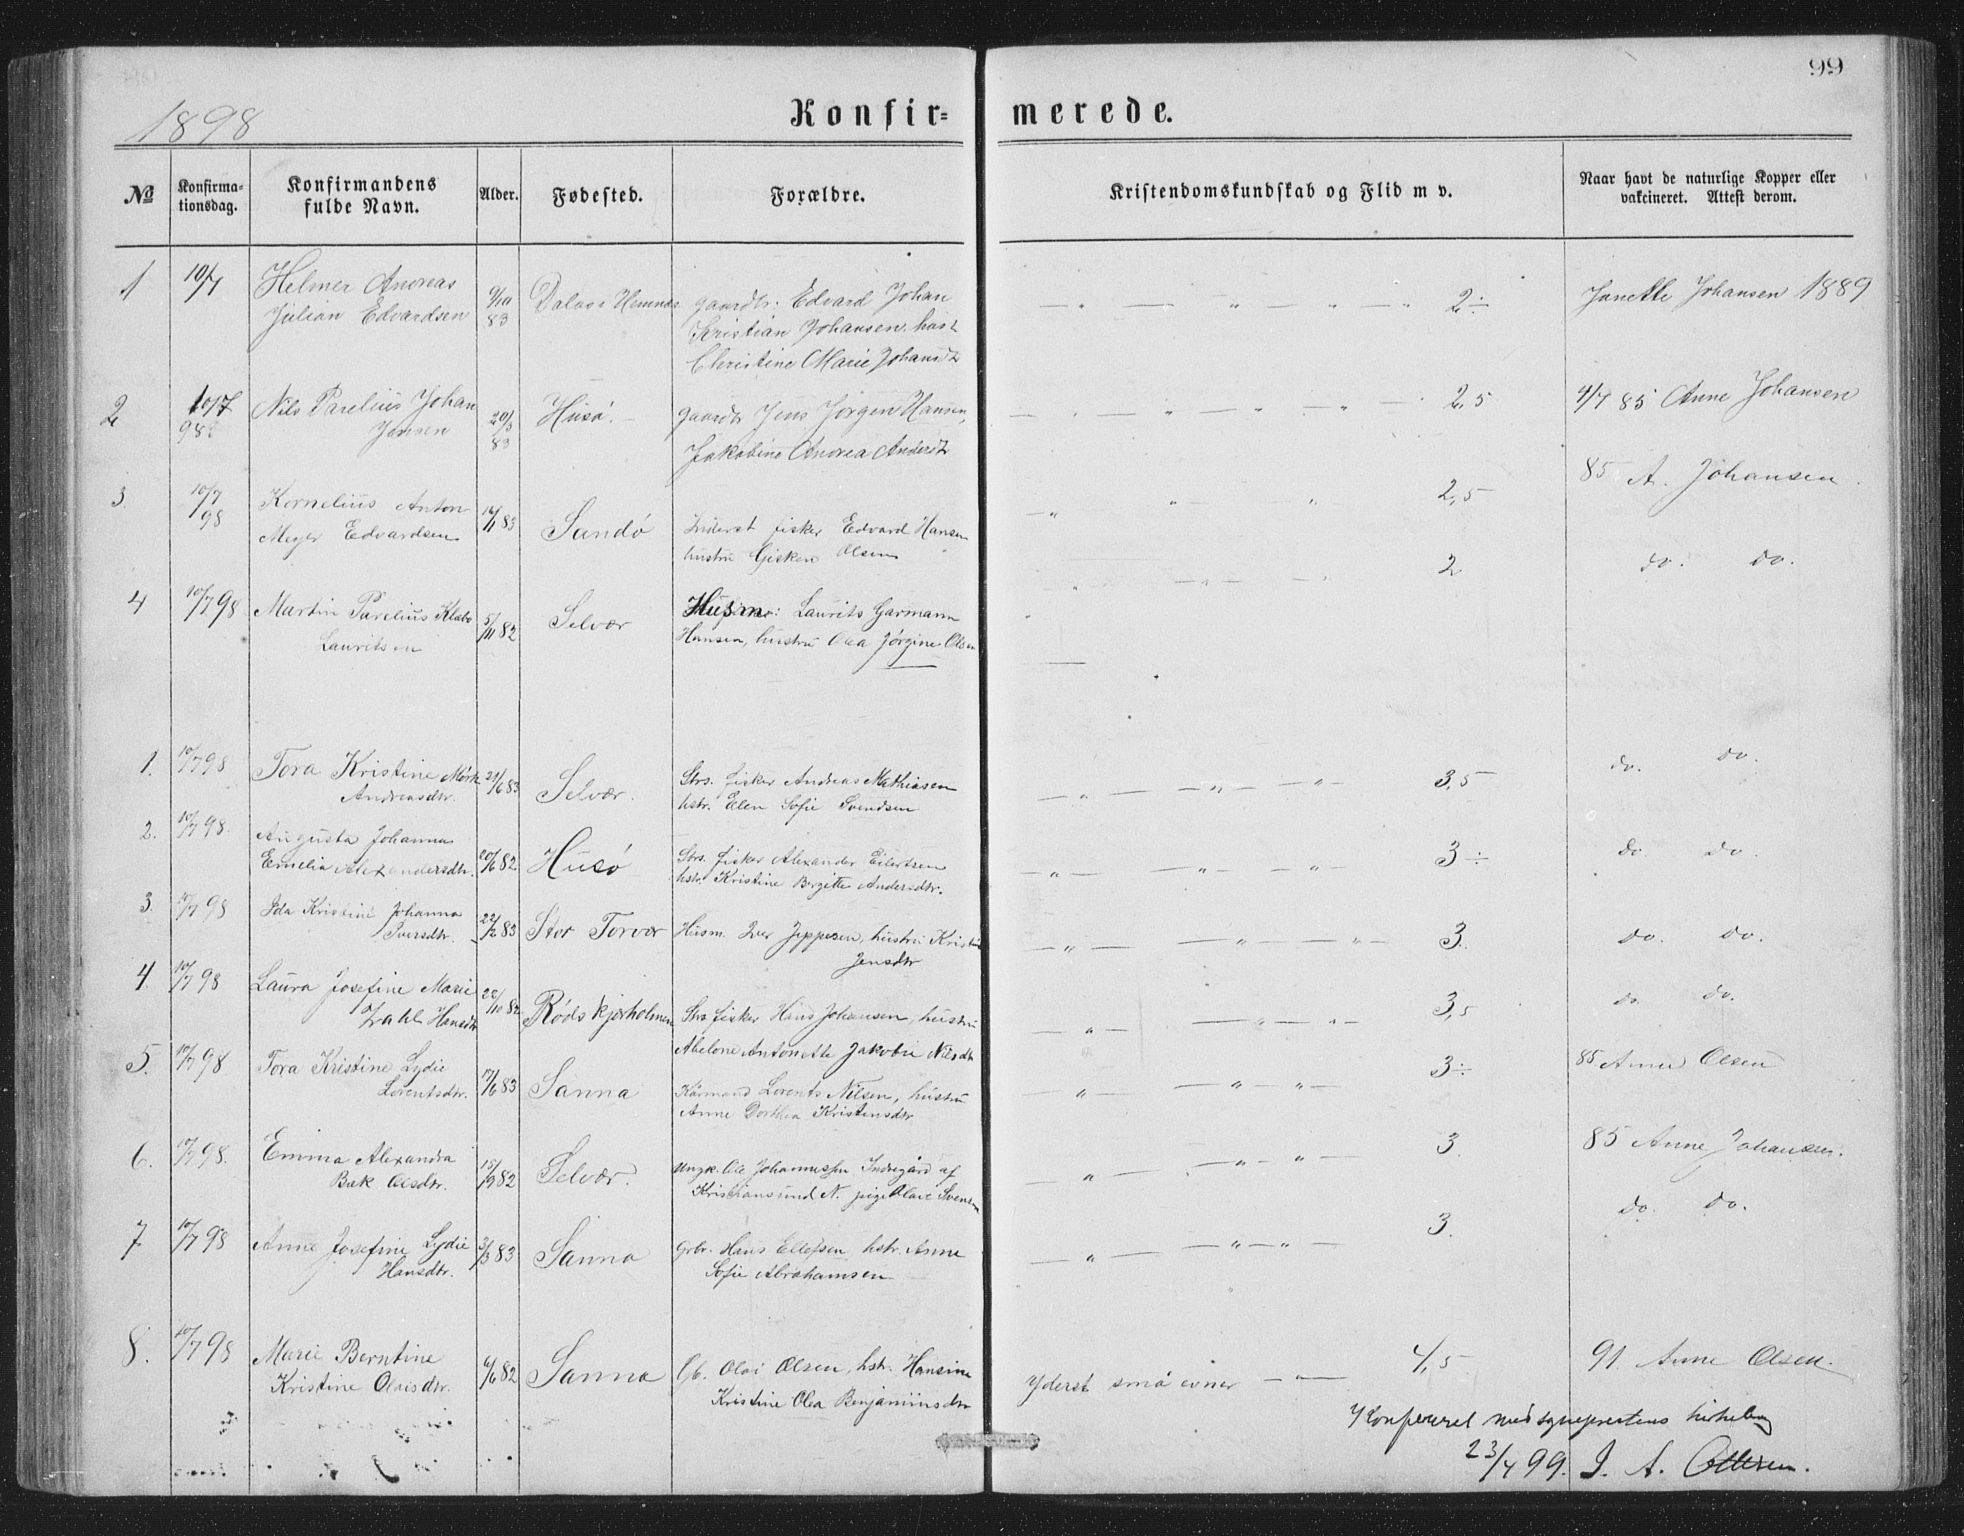 99
1898
Konfir= merede.
№ Konfirma-tionsdag. Konfirmandens fulde Navn. Alder. Fødested. Forældre. Kristendomskundskab og Flid m v. Naar havt de naturlige Kopper eller vakcineret. Attest derom.
1 10/7 Helmer Andreas 9/10 Hemnæs gaardbr: Edvard Johan 2÷ Janette Johansen 1889
Julian Edvardsen 83 Kristian Johansen, hust
Christine Marie Johansdtr
2 10/7 Nils Parelius Johan 20/3 Husö. gaardbr Jens Jørgen Hansen, 2,5 4/7 85 Anne Johansen
98 Jensen 83 Jakobine Andrea Andersdtr
3 10/7 Kornelius Anton 16/11 83 Sandö Inderst fisker Edvard Hansen 2,5 85 A. Johansen.
98 Meyer Edvardsen hustru Gisken Olsen
4 10/7 98 Martin Parelius Klæbo 5/11 82 Selvær Husm: Laurits Garmann 2 do. do.
Lauritsen Hansen, hustru Olea Jørgine Olsen
1. 10/7 98 Tora Kristine Mørk 21/6 83 Selvær. Strs. fisker Andreas Mathiasen 3,5 do. do.
Andreasdtr. hstr. Elen Sofie Svendsen
2. 10/7 98. Augusta Johanna 20/6 82 Husö Strs. fisker Alexander Eilertsen 3÷ do. do.
Emelia Alexandersdtr. hstr. Kristine Bergitte Andersdtr.
3. 10/7 98 Ida Kristine Johanna 22/2 83 Stor Torvær Husm. Iver Jeppesen, hustru Kristine 3. do. do.
Iversdtr. Jensdtr
4. 10/7 98 Laura Josefine Marie 22/10 82 Rödskjærholmen Strs fisker Hans Johansen, hustru 3,5 do. do.
Zahl Hansdtr Abelone Antonette Jakobie Nilsdtr
5. 10/7 98 Tora Kristine Lydie 17/6 83 Sanna Kårmand Lorents Nilsen, hustru 3÷ 85 Anne Olsen
Lorentsdtr. Anne Dorthea Kristensdtr
6. 10/7 98. Emma Alexandra 18/9 82 Selvær. Ungk. Ole Johannessen Indregård af 3. 85 Anne Johansen.
Bæk Olsdtr. Kristiansund N. pige Olave Svensen
7 10/7 98 Anne Josefine Lydie 3/3 83 Sanna Grbr. Hans Ellefsen hstr. Anne 3. do. do.
Hansdtr. Sofie Abrahamsen
8. 10/7 98 Marie Berntine 6/6 82 Sanna Gb. Olai Olsen, hstr. Hansine Yderst små evner 4,5 91 Anne Olsen.
Kristine Olaisdtr. Kristine Olea Benjaminsdtr
Konfereret med sogneprestens kirkebog
23/7 99. J. A. Ottesen.